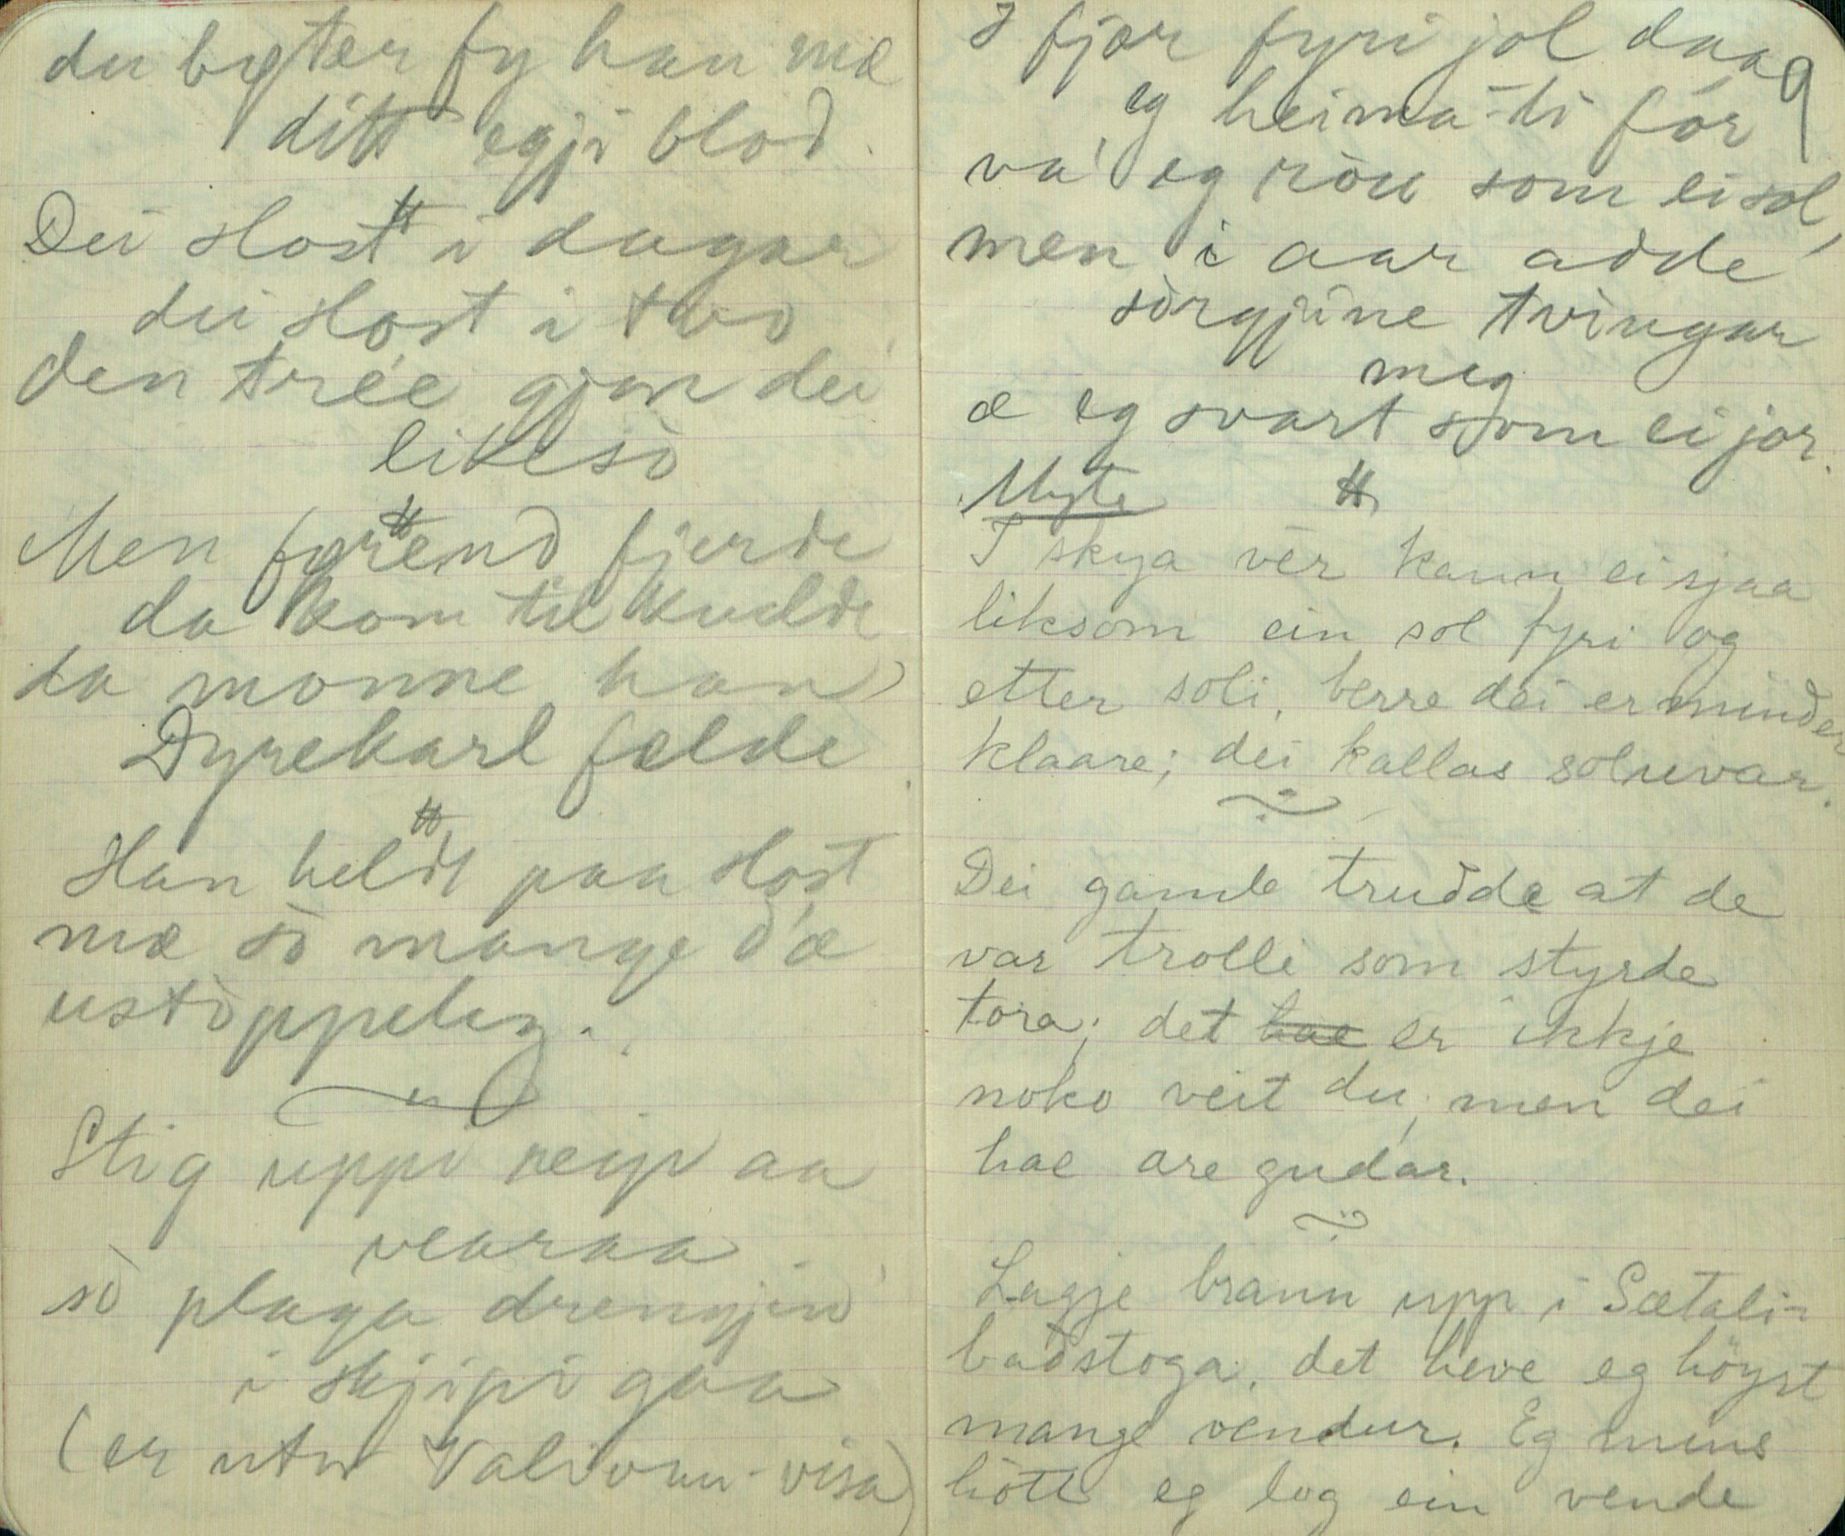 du bøter fy han mæ
ditt egji blod.
Dei slost i dagar
dei slost i two
den trée gjor dei
likesò
#
Men fyrend fjerde
da kom til kvelde
da monne han
Dyrekarl felde
#
Han heldt paa slost
mæ sò mange d'æ
ustòppeleg.
Stig uppi reip aa
vearaa
sò plaga drengjin
i skjipi gaa
(er utu Valivan-visa)
9
I fjor fyri jol daa
eg heima-ti fór
va' eg ròu som ei sol,
men i aar adde
sòrgjine tvingar
meg
æ eg svart som ei jor.
#
Myte
I skya vêr kann ei sjaa
liksom ein sol fyri og
etter soli, berre dei er minder
klaare; dei kallas soluvar.
Dei gamle trudde at de
var trolli som styrde
tora; det hae er ikkje
noko veit du, men dei
hae are gudar.
Lagje brann upp i Sætali-
badstoga, det heve eg höyrt
mange vendur. Eg mins
hòtt eg log ein vende